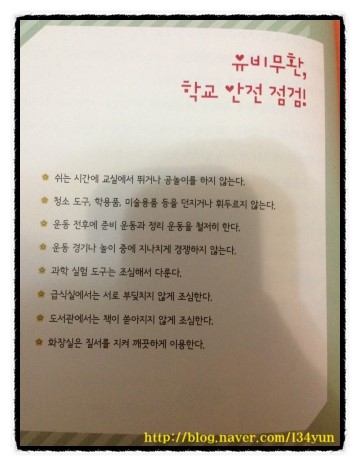 유비무환,
학교 안전 점검!
쉬는 시간에 교실에서 뛰거나 공놀이를 하지 않는다.
청소 도구, 학용품, 미술용품 등을 던지거나 휘두르지 않는다.
운동 전후에 준비 운동과 정리 운동을 철저히 한다.
운동 경기나 놀이 중에 지나치게 경쟁하지 않는다.
과학 실험 도구는 조심해서 다룬다.
급식실에서는 서로 부딪치지 않게 조심한다.
도서관에서는 책이 쏟아지지 않게 조심한다.
화장실은 질서를 지켜 깨끗하게 이용한다.
http://blog.naver.com/l34yun